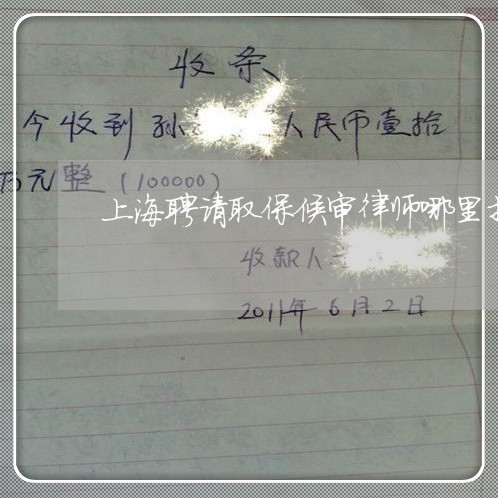 收条
今收到孙 人民币壹拾
万元整(100000)
上海聘请取保候审律师哪里
收款人
2011年6月2日